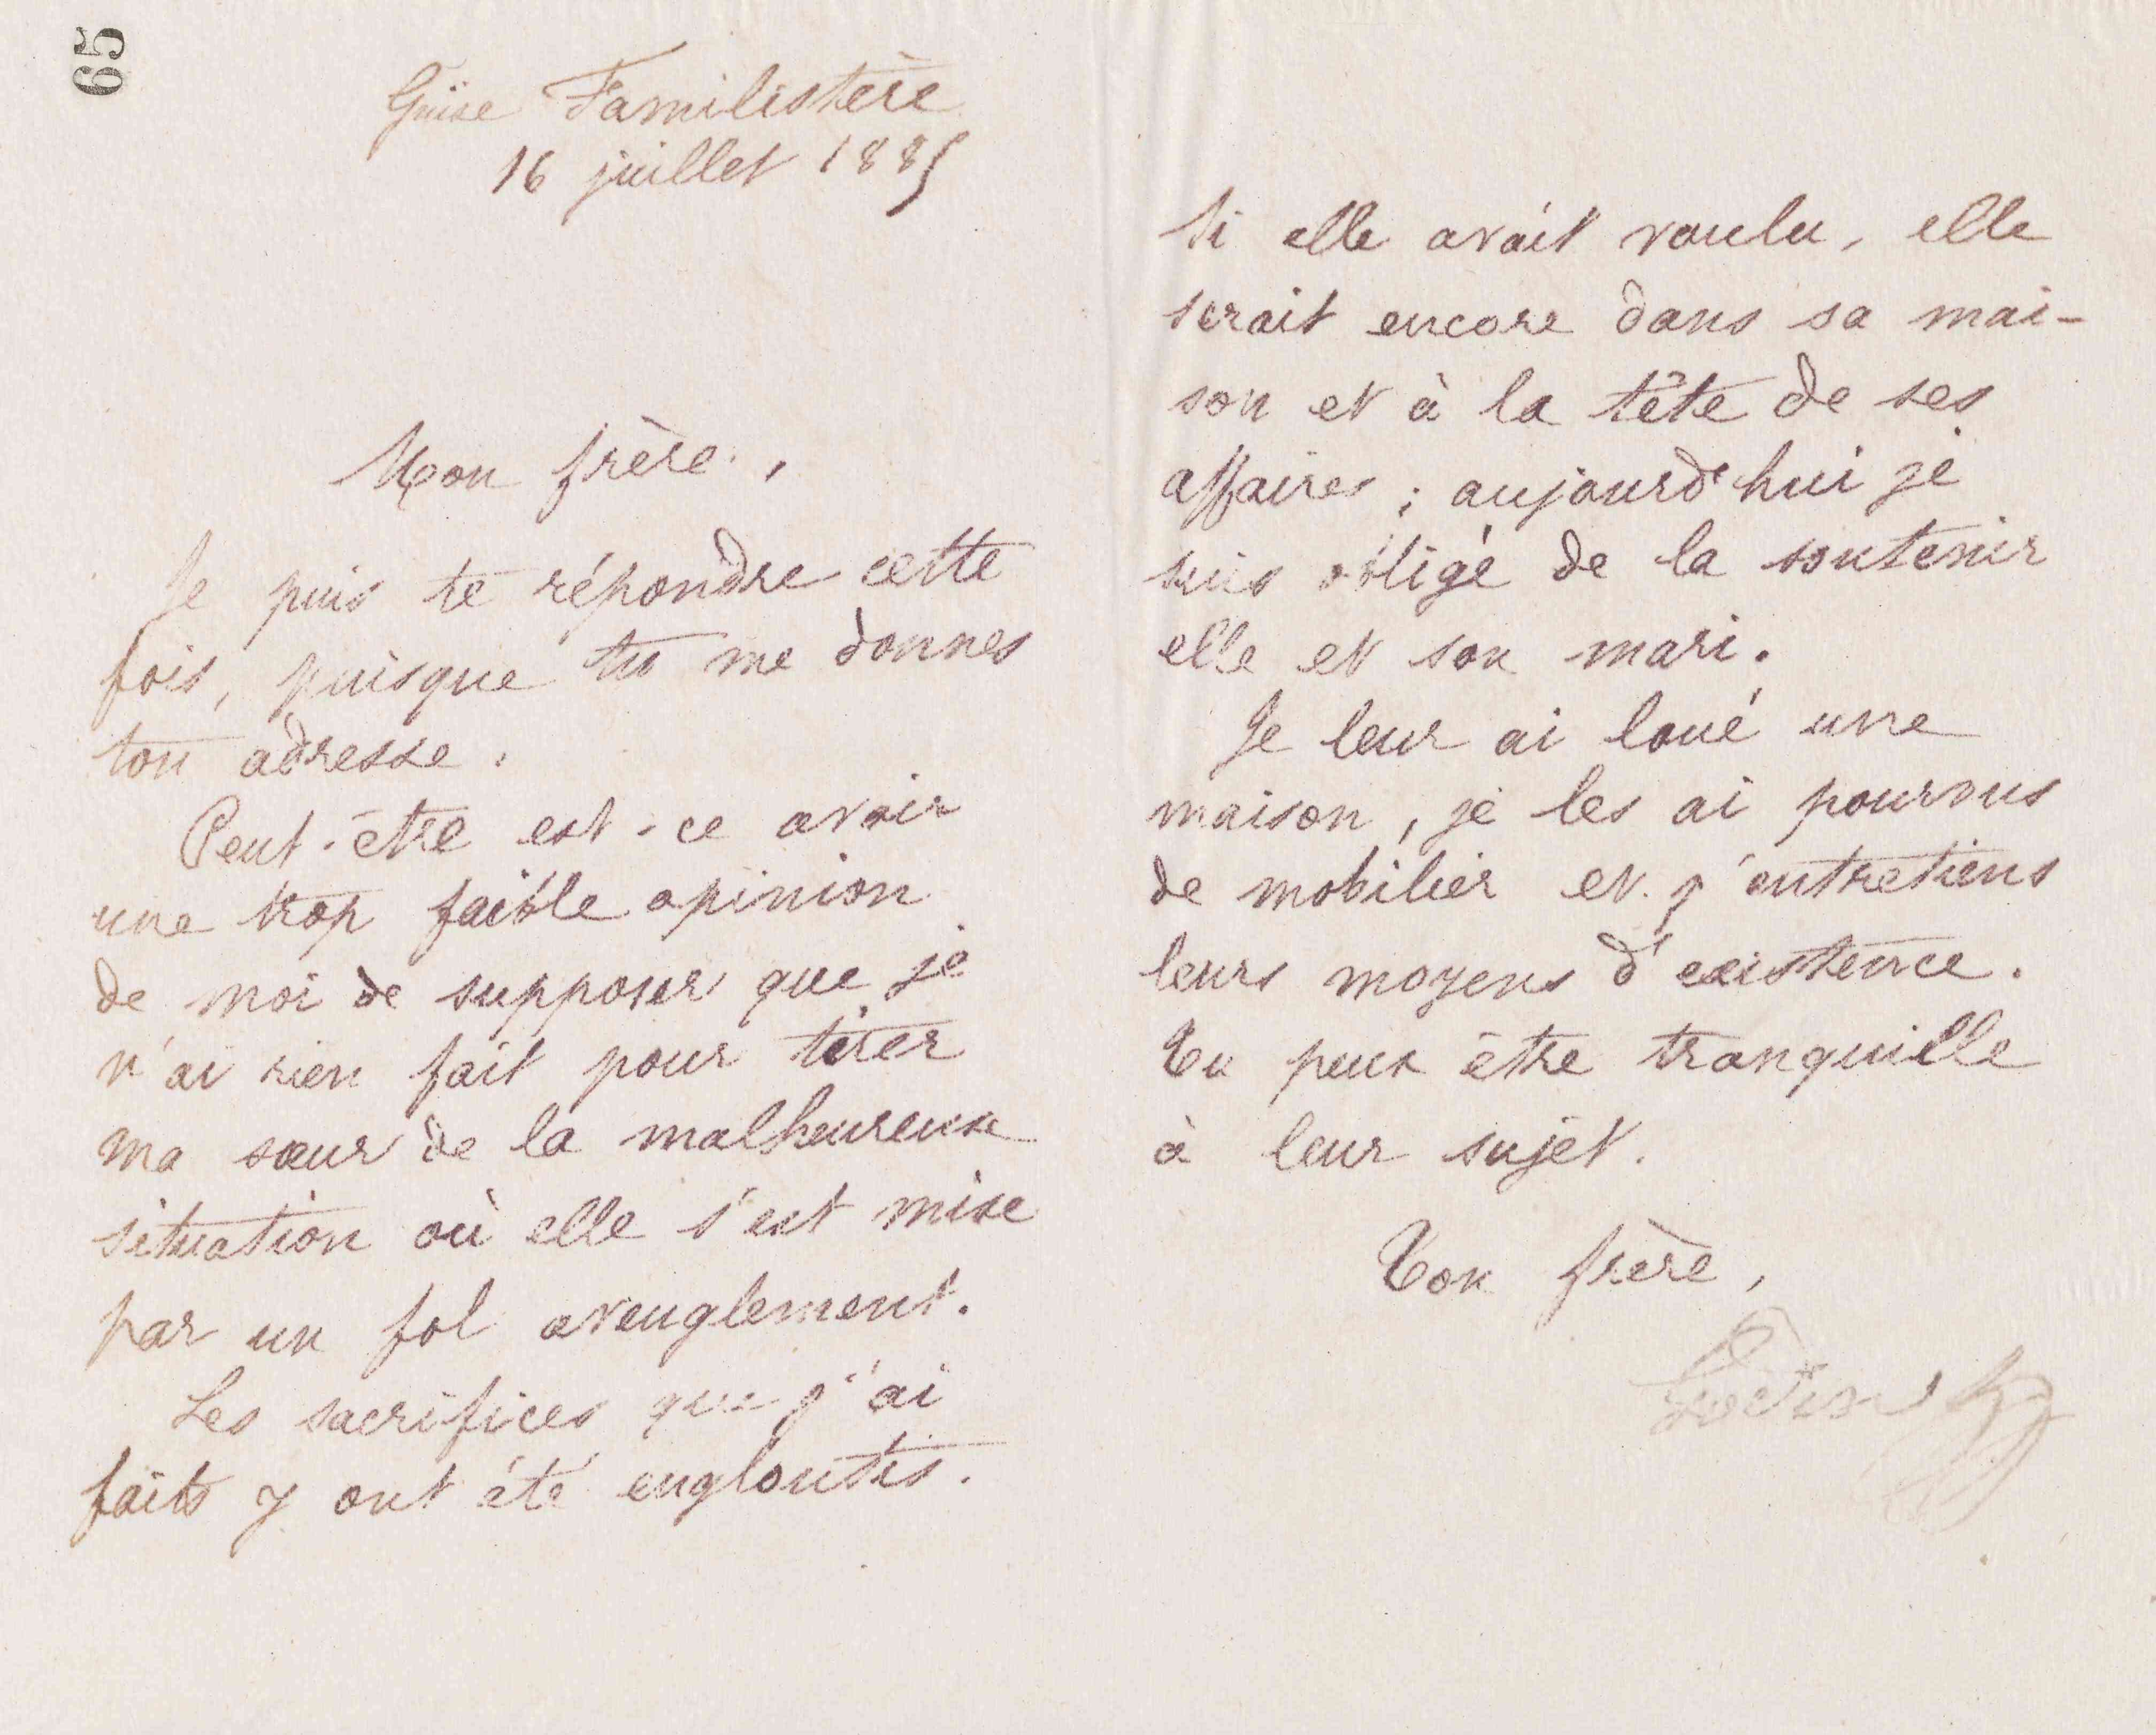 65
Guise Familistère
16 juillet 1885
Mon frère,
Je puis te répondre cette
fois, puisque tu me donnes
ton adresse.
Peut-être est-ce avoir
une trop faible opinion
de moi de supposer que je
n'ai rien fait pour tirer
ma sœur de la malheureuse
situation où elle s'est mise
par un fol aveuglement.
Les sacrifices que j'ai
faits y ont été engloutis.
Si elle avait voulu, elle
serait encore dans sa mai-
son et à la tête de ses
affaires ; aujourd'hui je
suis obligé de la soutenir
elle et son mari.
Je leur ai loué une
maison, je les ai pourvus
de mobilier et j'entretiens
leurs moyens d'existence.
Tu peux être tranquille
à leur sujet.
Ton frère,
Godin